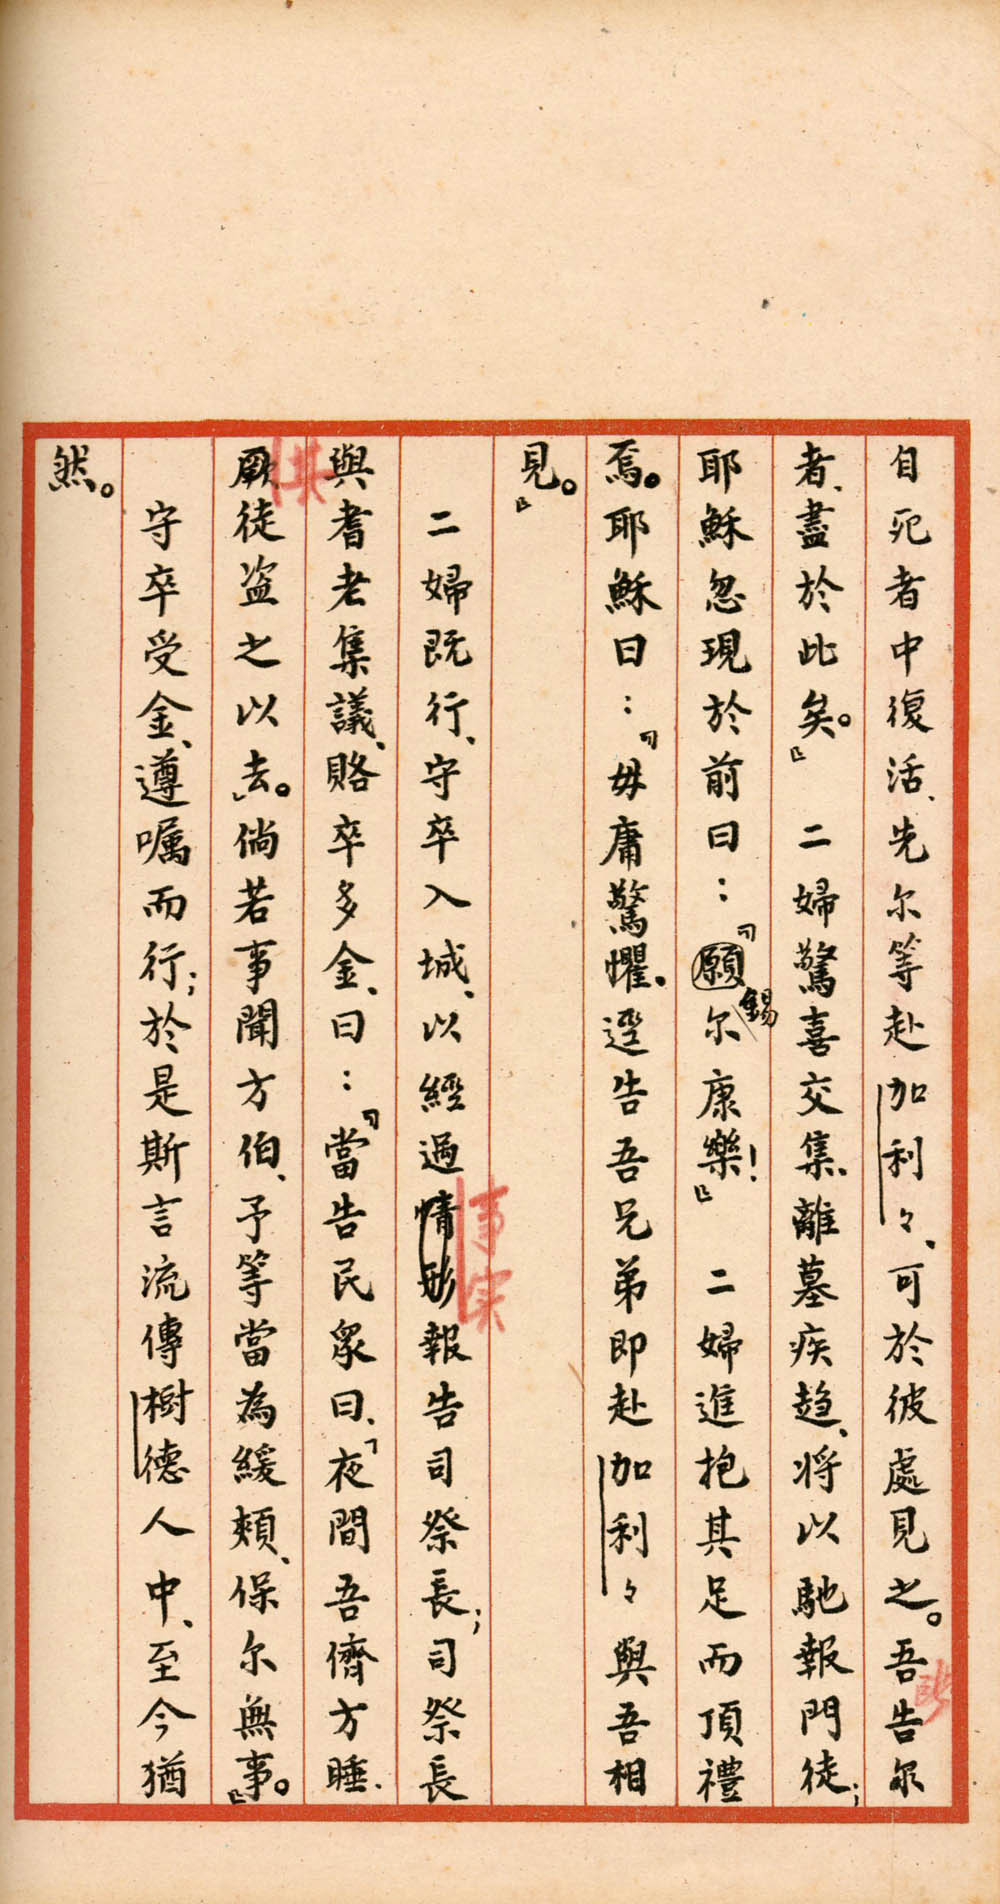 自死者中復活、先尔等赴加利々、可於彼處見之。吾告尔
者、盡於此矣。』　二婦驚喜交集、離墓疾趨、將以馳報門徒；
耶穌忽現於前曰：『願錫尔康樂！』　二婦進抱其足而頂禮
焉。耶穌曰：『毋庸驚懼。逕告吾兄弟即赴加利々與吾相
見。』
二婦既行、守卒入城、以經過情形報告司祭長；司祭長
事实
與耆老集議、賂卒多金、曰：『當告民眾曰、「夜間吾儕方睡．
厥徒盜之以去。」倘若事聞方伯、予等當為緩頰、保尔無事。』
其
守卒受金、遵囑而行；於是斯言流傳樹德人中、至今猶
然。